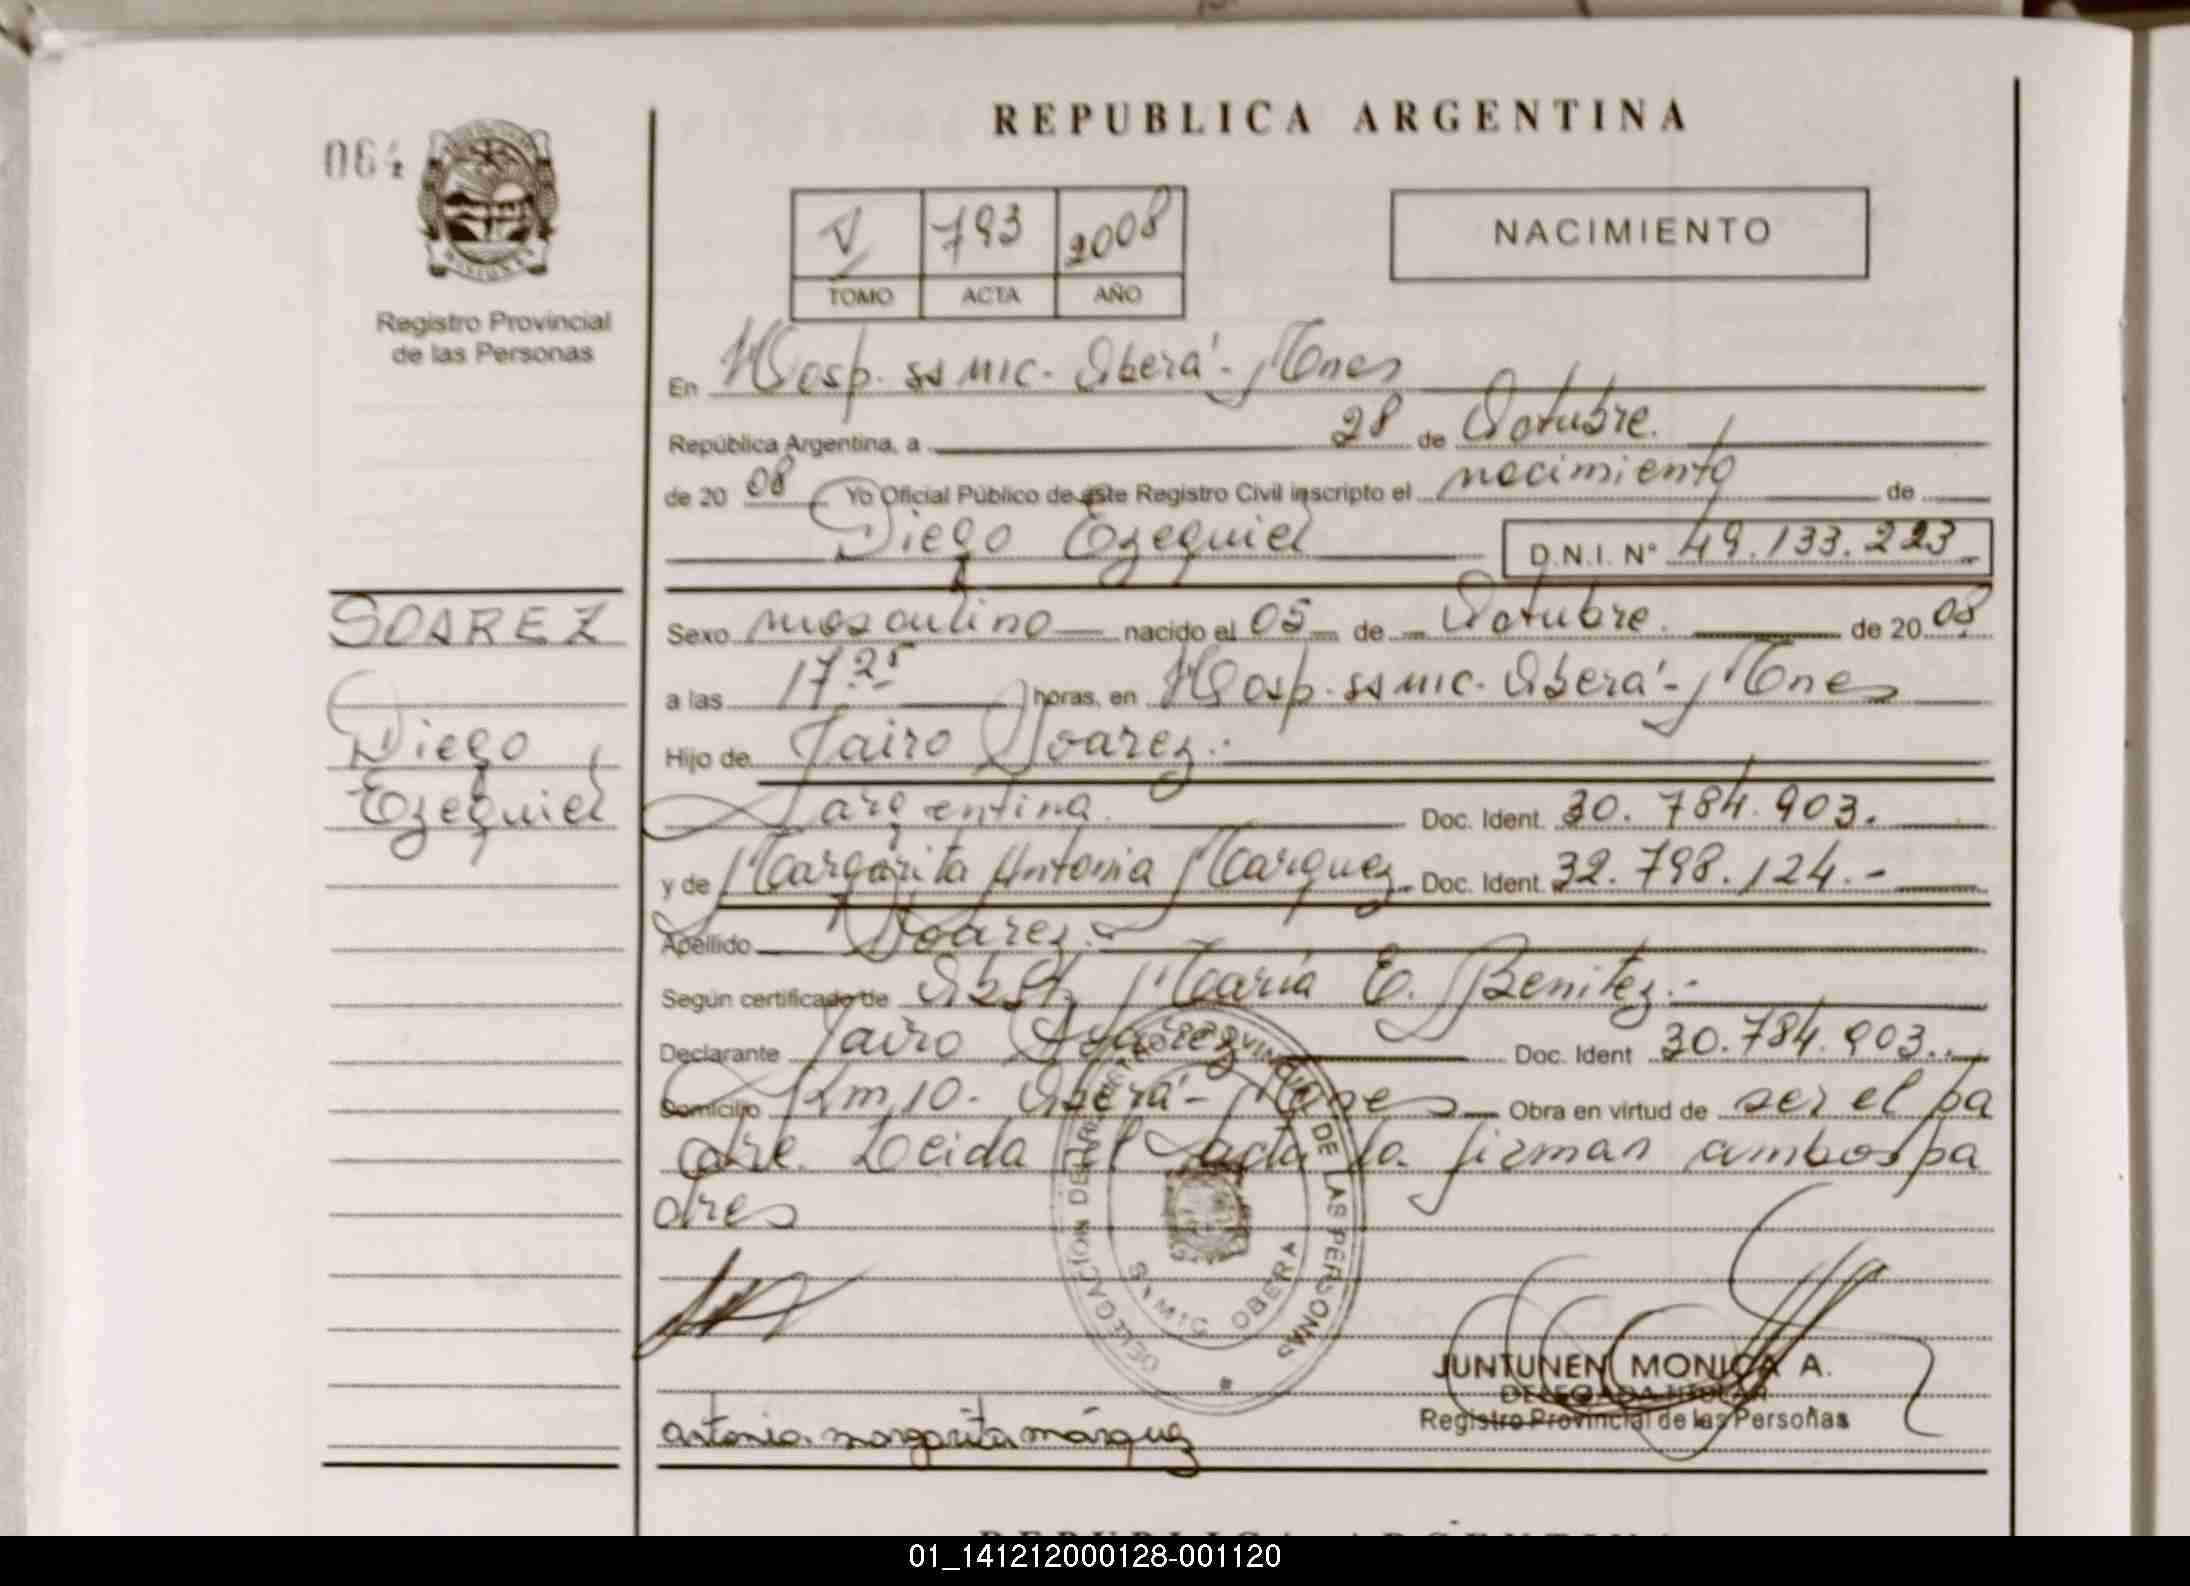 064
REPUBLICA ARGENTINA
V 793 2008
TOMO ACTA AÑO
NACIMIENTO
MISIONES
Registro Provincial
de las Personas
En Hosp. SS MIC. Oberá - Mnes
República Argentina, a 28 de Octubre.
de 20 08 Yo Oficial Público de este Registro Civil inscripto el nacimiento de
Diego Ezequiel D.N.I. N° 49.133.223
SOAREZ
Diego
Ezequiel
Sexo masculino nacido el 05 de Octubre. de 20 08
a las 17 25 horas, en Hosp. SS MIC. Oberá - Mnes
Hijo de Jairo Soarez.
argentina Doc. Ident. 30.784.903.
y de Margarita Antonia Marquez Doc. Ident. 32.798.124.-
Apellido Soarez.-
Según certificado de Obst. María E. Benitez.-
Declarante Jairo Soarez Doc. Ident 30.784.903.
Domicilio Km 10. Oberá - Mnes Obra en virtud de ser el pa
dre. Leida el acta la firman ambos pa
dres
DELEGACION DEL REGISTRO PROVINCIAL DE LAS PERSONAS
SAMIC OBERA
JUNTUNEN MONICA A.
DELEGADA TITULAR
Registro Provincial de las Personas
antonia margarita márquez
REPUBLICA ARGENTINA
01_141212000128-001120